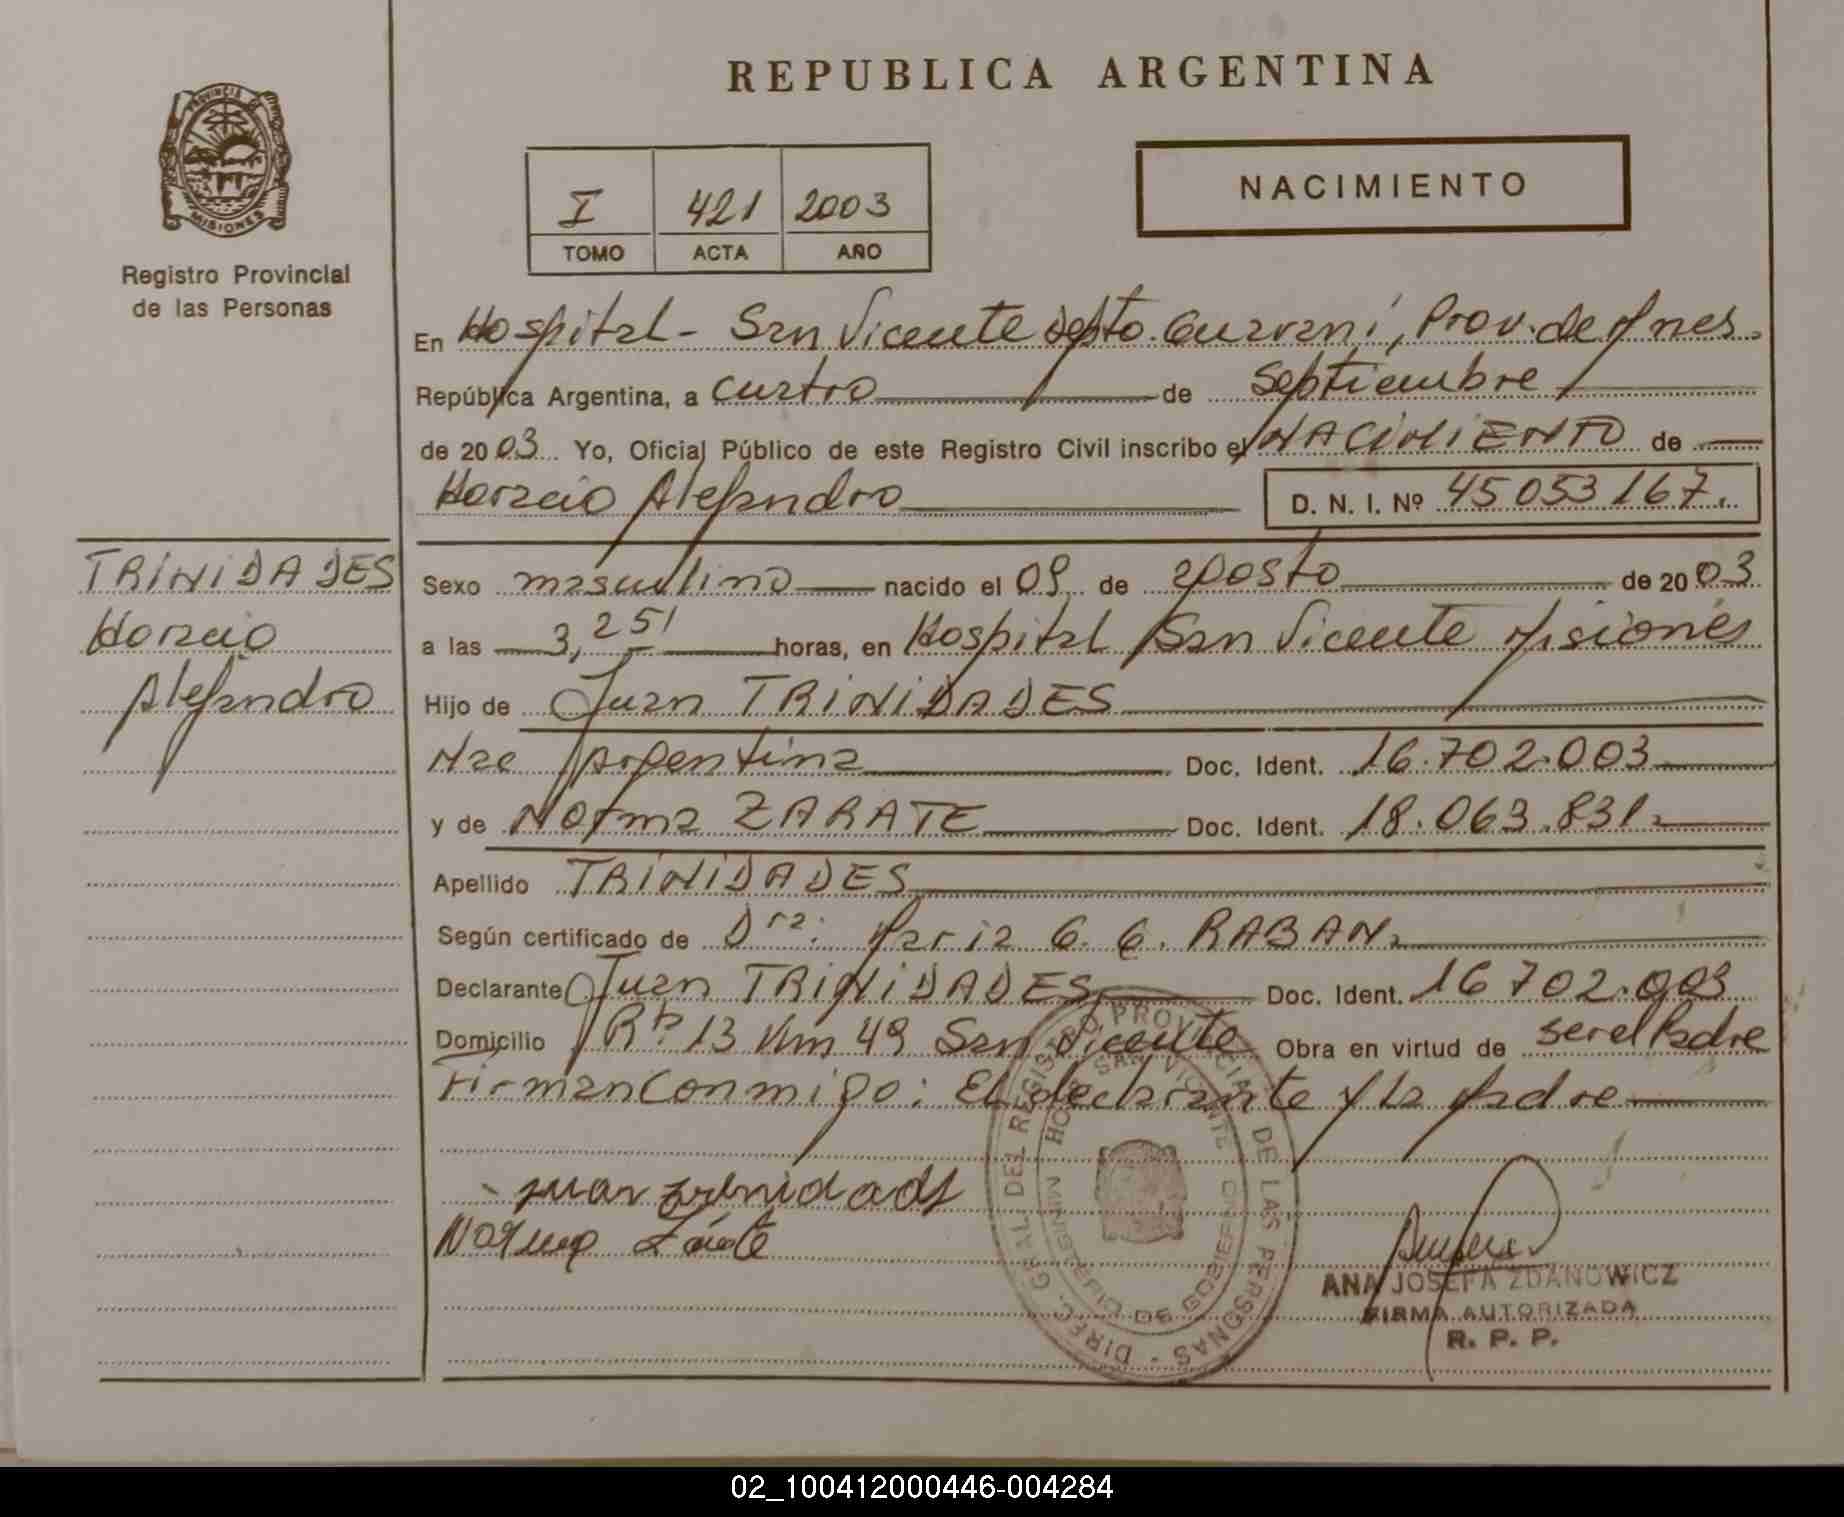 REPUBLICA ARGENTINA
PROVINCIA DE MISIONES
Registro Provincial
de las Personas
I 421 2003
TOMO ACTA AÑO
NACIMIENTO
En Hospital - San Vicente Depto. Guaraní, Prov. de Mnes.
República Argentina, a cuatro de Septiembre
de 2003 Yo, Oficial Público de este Registro Civil inscribo el NACIMIENTO de
Horacio Alejandro D. N. I. Nº 45 053 167.
TRINIDADES
Horacio
Alejandro
Sexo masculino nacido el 09 de agosto de 2003
a las 3,25' horas, en Hospital San Vicente Misiones
Hijo de Juan TRINIDADES
Nac Argentina Doc. Ident. 16.702.003
y de Norma ZARATE Doc. Ident. 18.063.831
Apellido TRINIDADES
Según certificado de Dra: Maria G. G. RABAN
Declarante Juan TRINIDADES Doc. Ident. 16 702.003
Domicilio Rta 13 Km 49 San Vicente Obra en virtud de ser el Padre
Firman Conmigo: El declarante y la Madre
juan trinidads
Norma Zárate
DIREC. GRAL. DEL REGISTRO PROVINCIAL DE LAS PERSONAS
HOSP. SAN VICENTE
MINISTERIO DE GOBIERNO
ANA JOSEFA ZDANOWICZ
FIRMA AUTORIZADA
R. P. P.
02_100412000446-004284